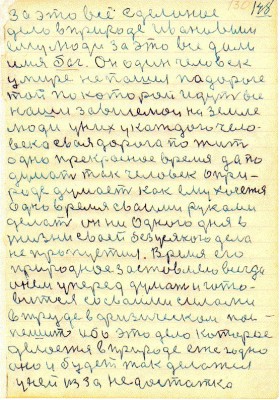 138
за это всё сделиное
дело в природе Ивановыми
ему люди за это все дали
имя Бог. Он один человек
в мире не пошел па дороге
той по которой идут все
наши за виемой на Земле
люди у них у каждого чело-
века своя дорога по жить
одно прекрасное время да по
думать так человек о при-
роде думает как ему хочется
одно время своими руками
делать он ни одного дня в
жизни своей без усякого дела
не пропустил. Время его
природное заставляло всегда
о нем у перед думать и гото-
вится со своими силами
в труде в физическом пос-
пешит ибо это дело которое
делается в природе ежегодно
оно и будет так делатся
у ней из за недостатка